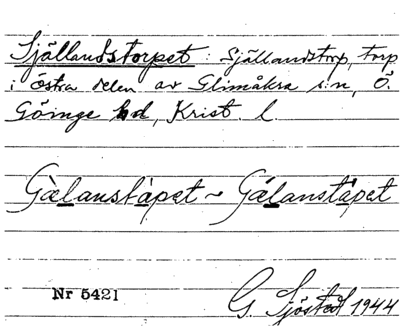 Själlandstorpet: Själlandstorp, torp
i östra delen av Glimåkra s:n, Ö.
Göinge hd, Krist. l.
Gàelanståpet ~ Gǽlanståpet
Nr 5421
G. Sjöstedt 1944